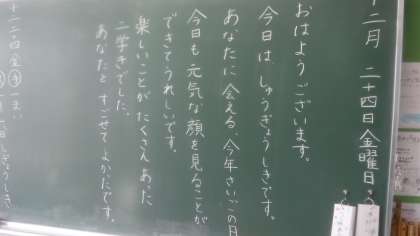 十二月 二十四日 金曜日
おはようございます。
今日は しゅうぎょうしきです。
あなたに会える、今年さいごの日
今日も元気な顔を見ることが
できてうれしいです。
楽しいことが たくさん あった
二学きでした。
あなたと すごせて よかったです。